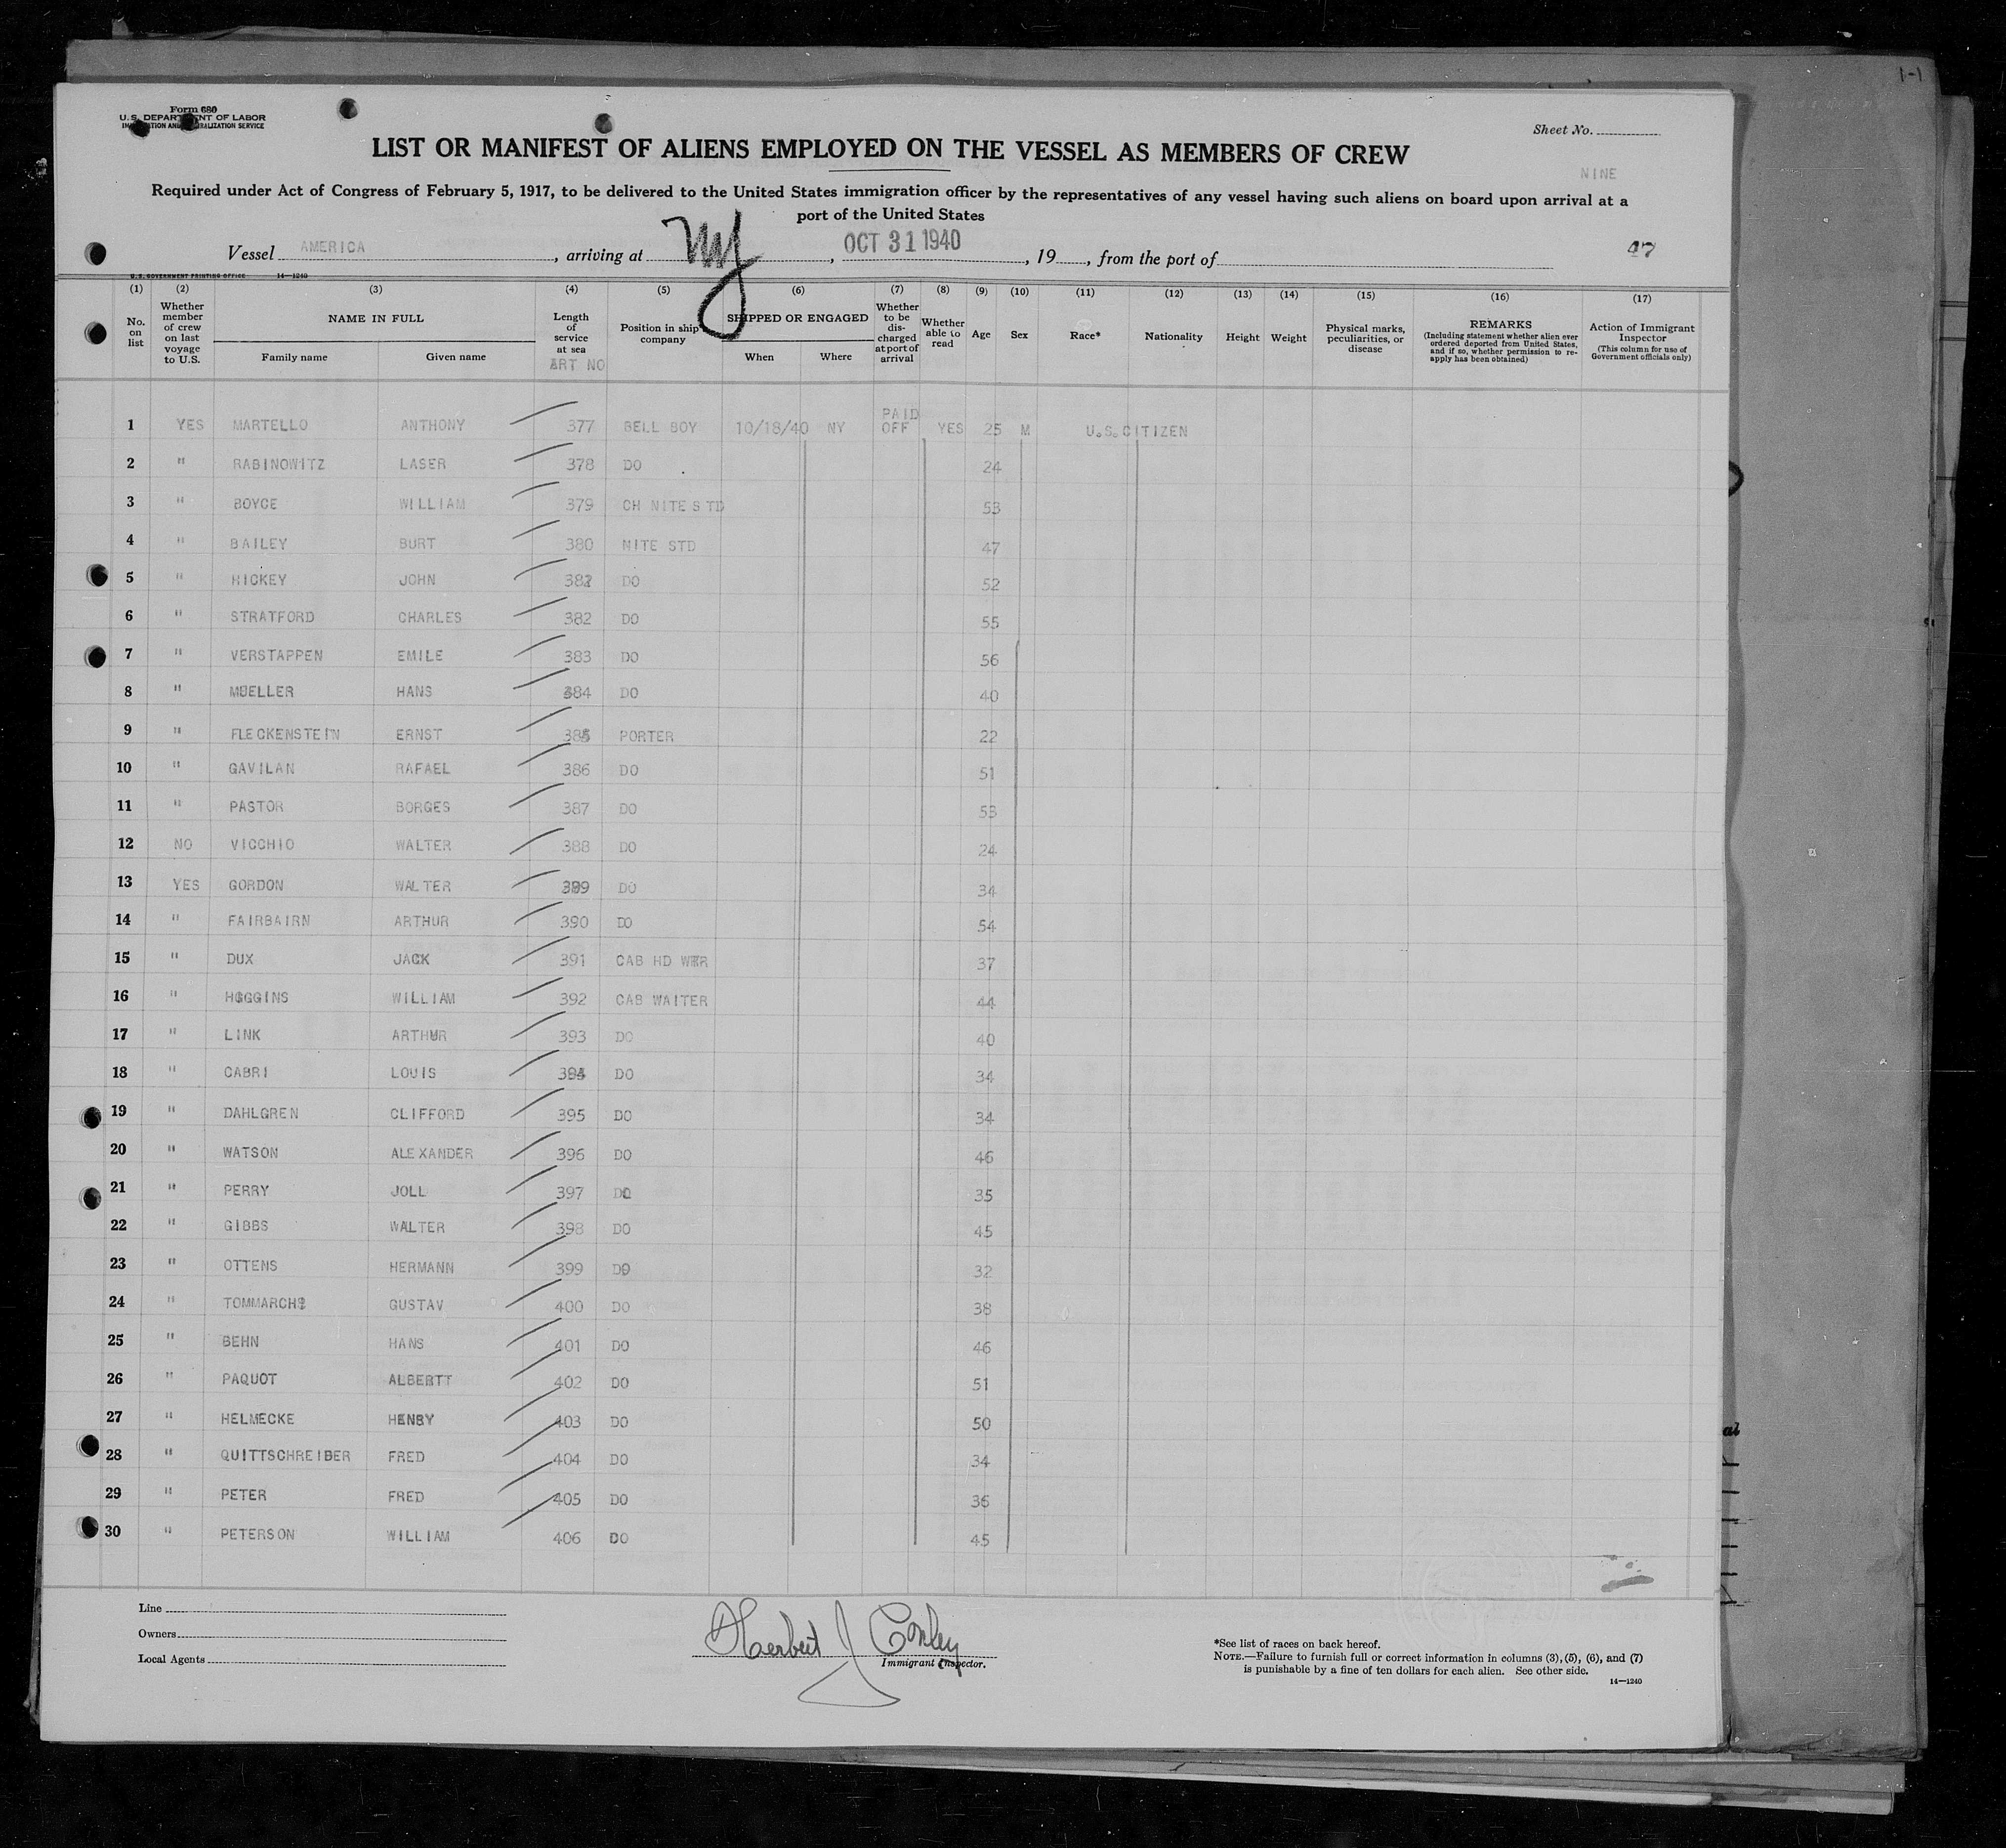 1-1
Form 680
U. S. DEPARTMENT OF LABOR
IMMIGRATION AND NATURALIZATION SERVICE
Sheet No.
LIST OR MANIFEST OF ALIENS EMPLOYED ON THE VESSEL AS MEMBERS OF CREW
NINE
Required under Act of Congress of February 5, 1917, to be delivered to the United States immigration officer by the representatives of any vessel having such aliens on board upon arrival at a
port of the United States
Vessel AMERICA, arriving at NY, OCT 31 1940, 19, from the port of 47
U. S. GOVERNMENT PRINTING OFFICE 14—1240
(1) (2) (3) (4) (5) (6) (7) (8) (9) (10) (11) (12) (13) (14) (15) (16) (17)
No. on list
Whether member of crew on last voyage to U.S.
NAME IN FULL
Family name Given name
Length of service at sea
ART NO
Position in ship company
SHIPPED OR ENGAGED
When Where
Whether to be discharged at port of arrival
Whether able to read
Age Sex Race* Nationality Height Weight
Physical marks, peculiarities, or disease
REMARKS
(Including statement whether alien ever ordered deported from United States, and if so, whether permission to reapply has been obtained)
Action of Immigrant Inspector
(This column for use of Government officials only)
1 YES MARTELLO ANTHONY 377 BELL BOY 10/18/40 NY PAID OFF YES 25 M U.S.CITIZEN
2 " RABINOWITZ LASER 378 DO 24
3 " BOYCE WILLIAM 379 CH NITE STD 53
4 " BAILEY BURT 380 NITE STD 47
5 " HICKEY JOHN 382 DO 52
6 " STRATFORD CHARLES 382 DO 55
7 " VERSTAPPEN EMILE 383 DO 56
8 " MUELLER HANS 384 DO 40
9 " FLECKENSTEIN ERNST 385 PORTER 22
10 " GAVILAN RAFAEL 386 DO 51
11 " PASTOR BORGES 387 DO 53
12 NO VICCHIO WALTER 388 DO 24
13 YES GORDON WALTER 389 DO 34
14 " FAIRBAIRN ARTHUR 390 DO 54
15 " DUX JACK 391 CAB HD WTR 37
16 " HIGGINS WILLIAM 392 CAB WAITER 44
17 " LINK ARTHUR 393 DO 40
18 " CABRI LOUIS 394 DO 34
19 " DAHLGREN CLIFFORD 395 DO 34
20 " WATSON ALEXANDER 396 DO 46
21 " PERRY JOLL 397 DO 35
22 " GIBBS WALTER 398 DO 45
23 " OTTENS HERMANN 399 DO 32
24 " TOMMARCHI GUSTAV 400 DO 38
25 " BEHN HANS 401 DO 46
26 " PAQUOT ALBERTT 402 DO 51
27 " HELMECKE HENRY 403 DO 50
28 " QUITTSCHREIBER FRED 404 DO 34
29 " PETER FRED 405 DO 36
30 " PETERSON WILLIAM 406 DO 45
Line
Owners
Local Agents
Herbert J Conley
Immigrant Inspector.
*See list of races on back hereof.
NOTE.—Failure to furnish full or correct information in columns (3), (5), (6), and (7)
is punishable by a fine of ten dollars for each alien. See other side.
14—1240